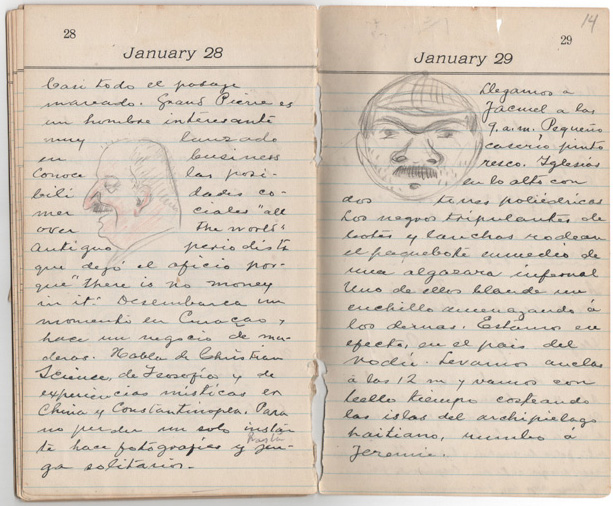 28
January 28
Casi todo el pasage
mareado. Grand Pierre es
un hombre interesante
muy lanzado
en business
Conoce las posi-
bili dades co-
mer ciales "all
over the world"
Antiguo periodista
que dejó el oficio por-
qué "there is no money
in it". Desembarca un
momento en Curaçao y
hace un negocio de ma-
deras. Habla de Christian
Science, de Teosofía y de
experiencias místicas en
China y Constantinopla. Para
no perder un solo instan-
te hace fotografías y hasta jue-
ga solitarios.-
14
29
January 29
Llegamos a
Jacmel a las
9. a.m. Pequeño
caserío pinto
resco. Iglesias
en lo alto con
dos torres poliédricas
Los negros tripulantes de
botes y lanchas rodean
el paquebote enmedio de
una algazara infernal
Uno de ellos blande un
cuchillo amenazando á
los demas. Estamos en
efecto, en el pais del
Vodú. Levamos anclas
á las 12 m y vamos con
bello tiempo costeando
las islas del archipielago
haitiano, rumbo á
Jeremie.